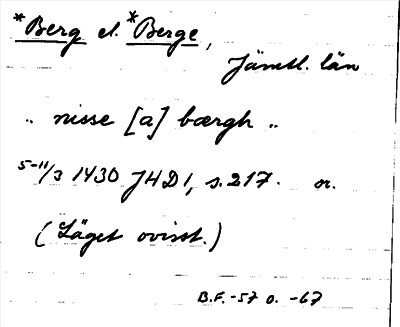 *Berg el. *Berge,
Jämtl. län
.. nisse [a] bærgh ..
5-11/3 1430 JHD 1, s. 217. n.
(Läget ovisst.)
B.F. -57 o. -67